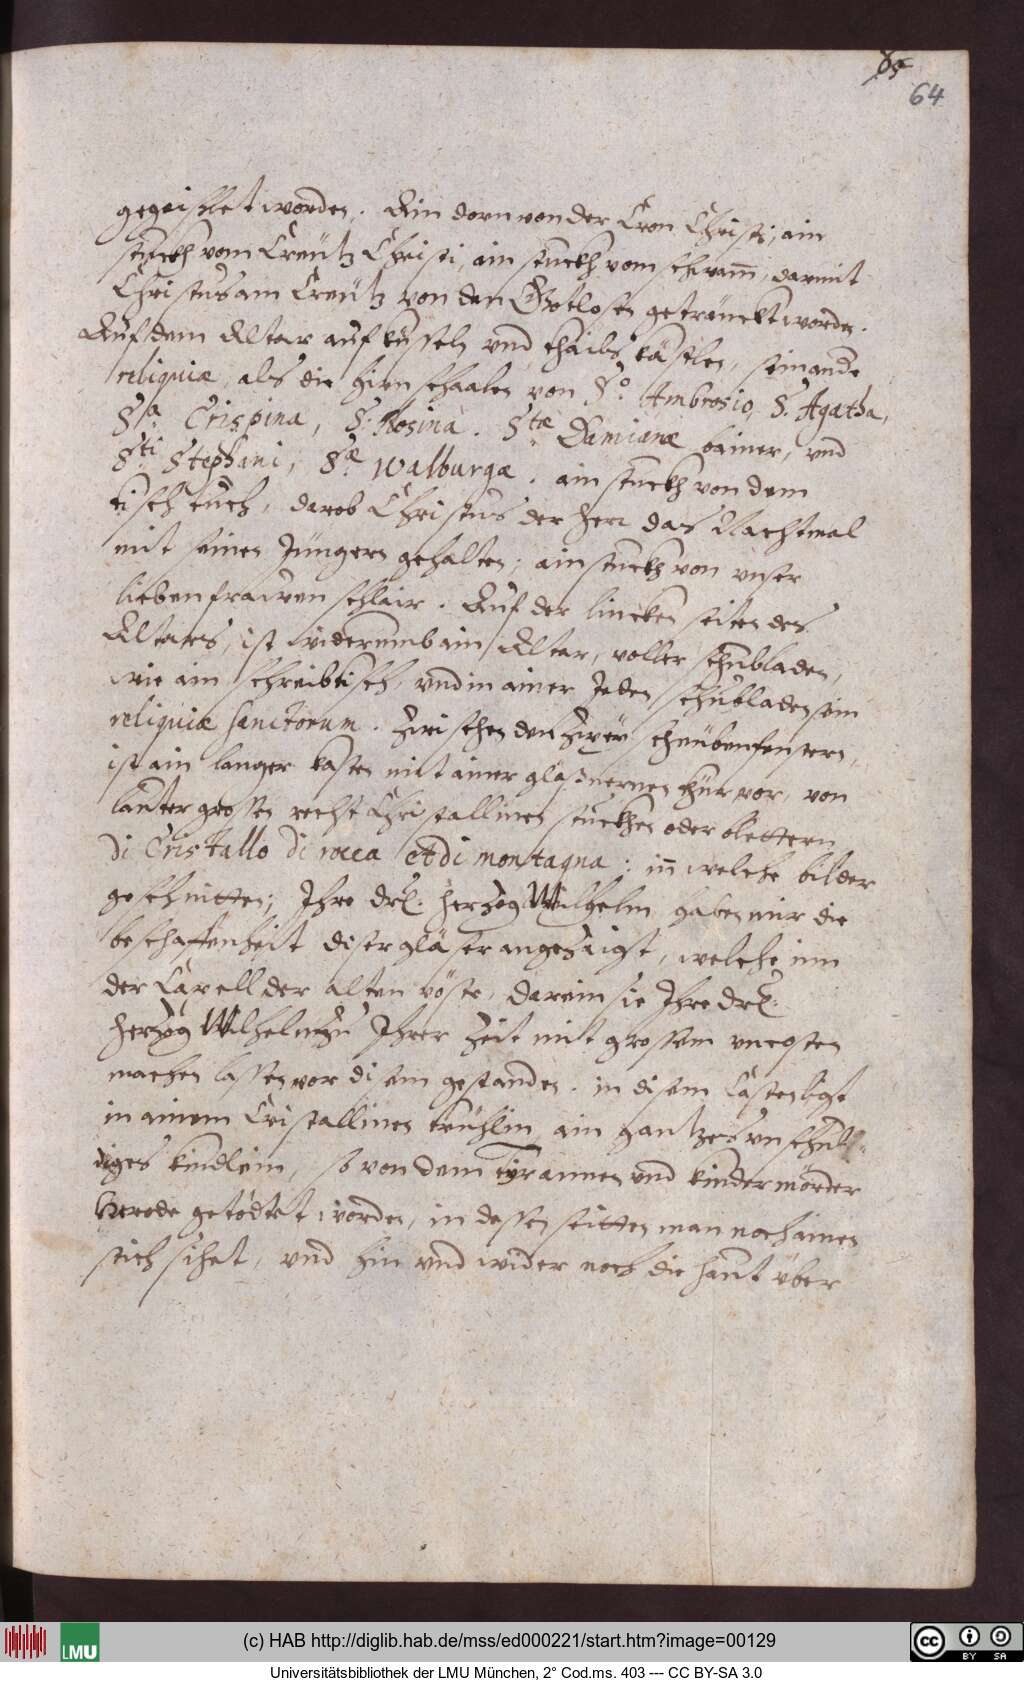 85
64
gegeislet worden. Ein dorn von der Cron Christi, ain
stuckh vom Creütz Christi, ain stuckh vom schwam̄, darmit
Christus am Creütz von den Gottlosen getrenckt worden.
Auf dem Altar auf küsseln vnd thails kästlen, sein ande
reliquiæ, als die hirnschaalen von So. Ambrosio, S. Agatha,
Sa. Crispina, S. Rosina. Stæ Damianæ bainer, vnd
Sti Stephani, Sæ Walburgæ. ain stuckh von dem
tischtuch, darob Christus der herr das Nachtmal
mit seinen Jüngern gehalten; ain stuckh von vnser
lieben frawen schlair. Auf der lincken seiten des
Altars, ist widerumb ain Altar, voller schubladen,
wie ain schreibtisch, vnd in ainer Jeden schubladen sein
reliquiæ sanctorum. Zwischen den zwyen scheübenfenstern,
ist ain langer kasten mit ainer gläßernen thür vor, von
lauter grossen recht Christallinen stuckhen oder blettern
di Cristallo di rocca et di montagna: in̄ welche bilder
geschnitten; Ihre drl. herzog Wilhelm haben mir die
beschaffenheit diser gläser angezaigt, welche inn
der Capell der alten vöste, darein sie Ihre drl.
herzog Wilhelm zu Ihrer Zeit mit grossem vncosten
machen lassen vor disem gestanden. in disem Casten ligt
in ainem Cristallinen trühlin ain gantzes vnschul-
diges kindlein, so von dem Tyrannen vnd kindermörder
Herode getödtet worden, in dessen seitten man noch ainen
stich sihet, vnd hin vnd wider noch die haut über
(c) HAB http://diglib.hab.de/mss/ed000221/start.htm?image=00129
LMU
cc BY SA
Universitätsbibliothek der LMU München, 2° Cod.ms. 403 --- CC BY-SA 3.0